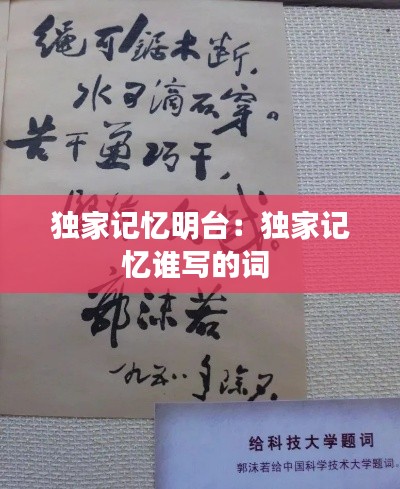 绳可锯木断，
水可滴石穿。
苦干兼巧干，
独家记忆明台：独家记
忆谁写的词
郭沫若
一九五八年除夕
给科技大学题词
郭沫若给中国科学技术大学题词。